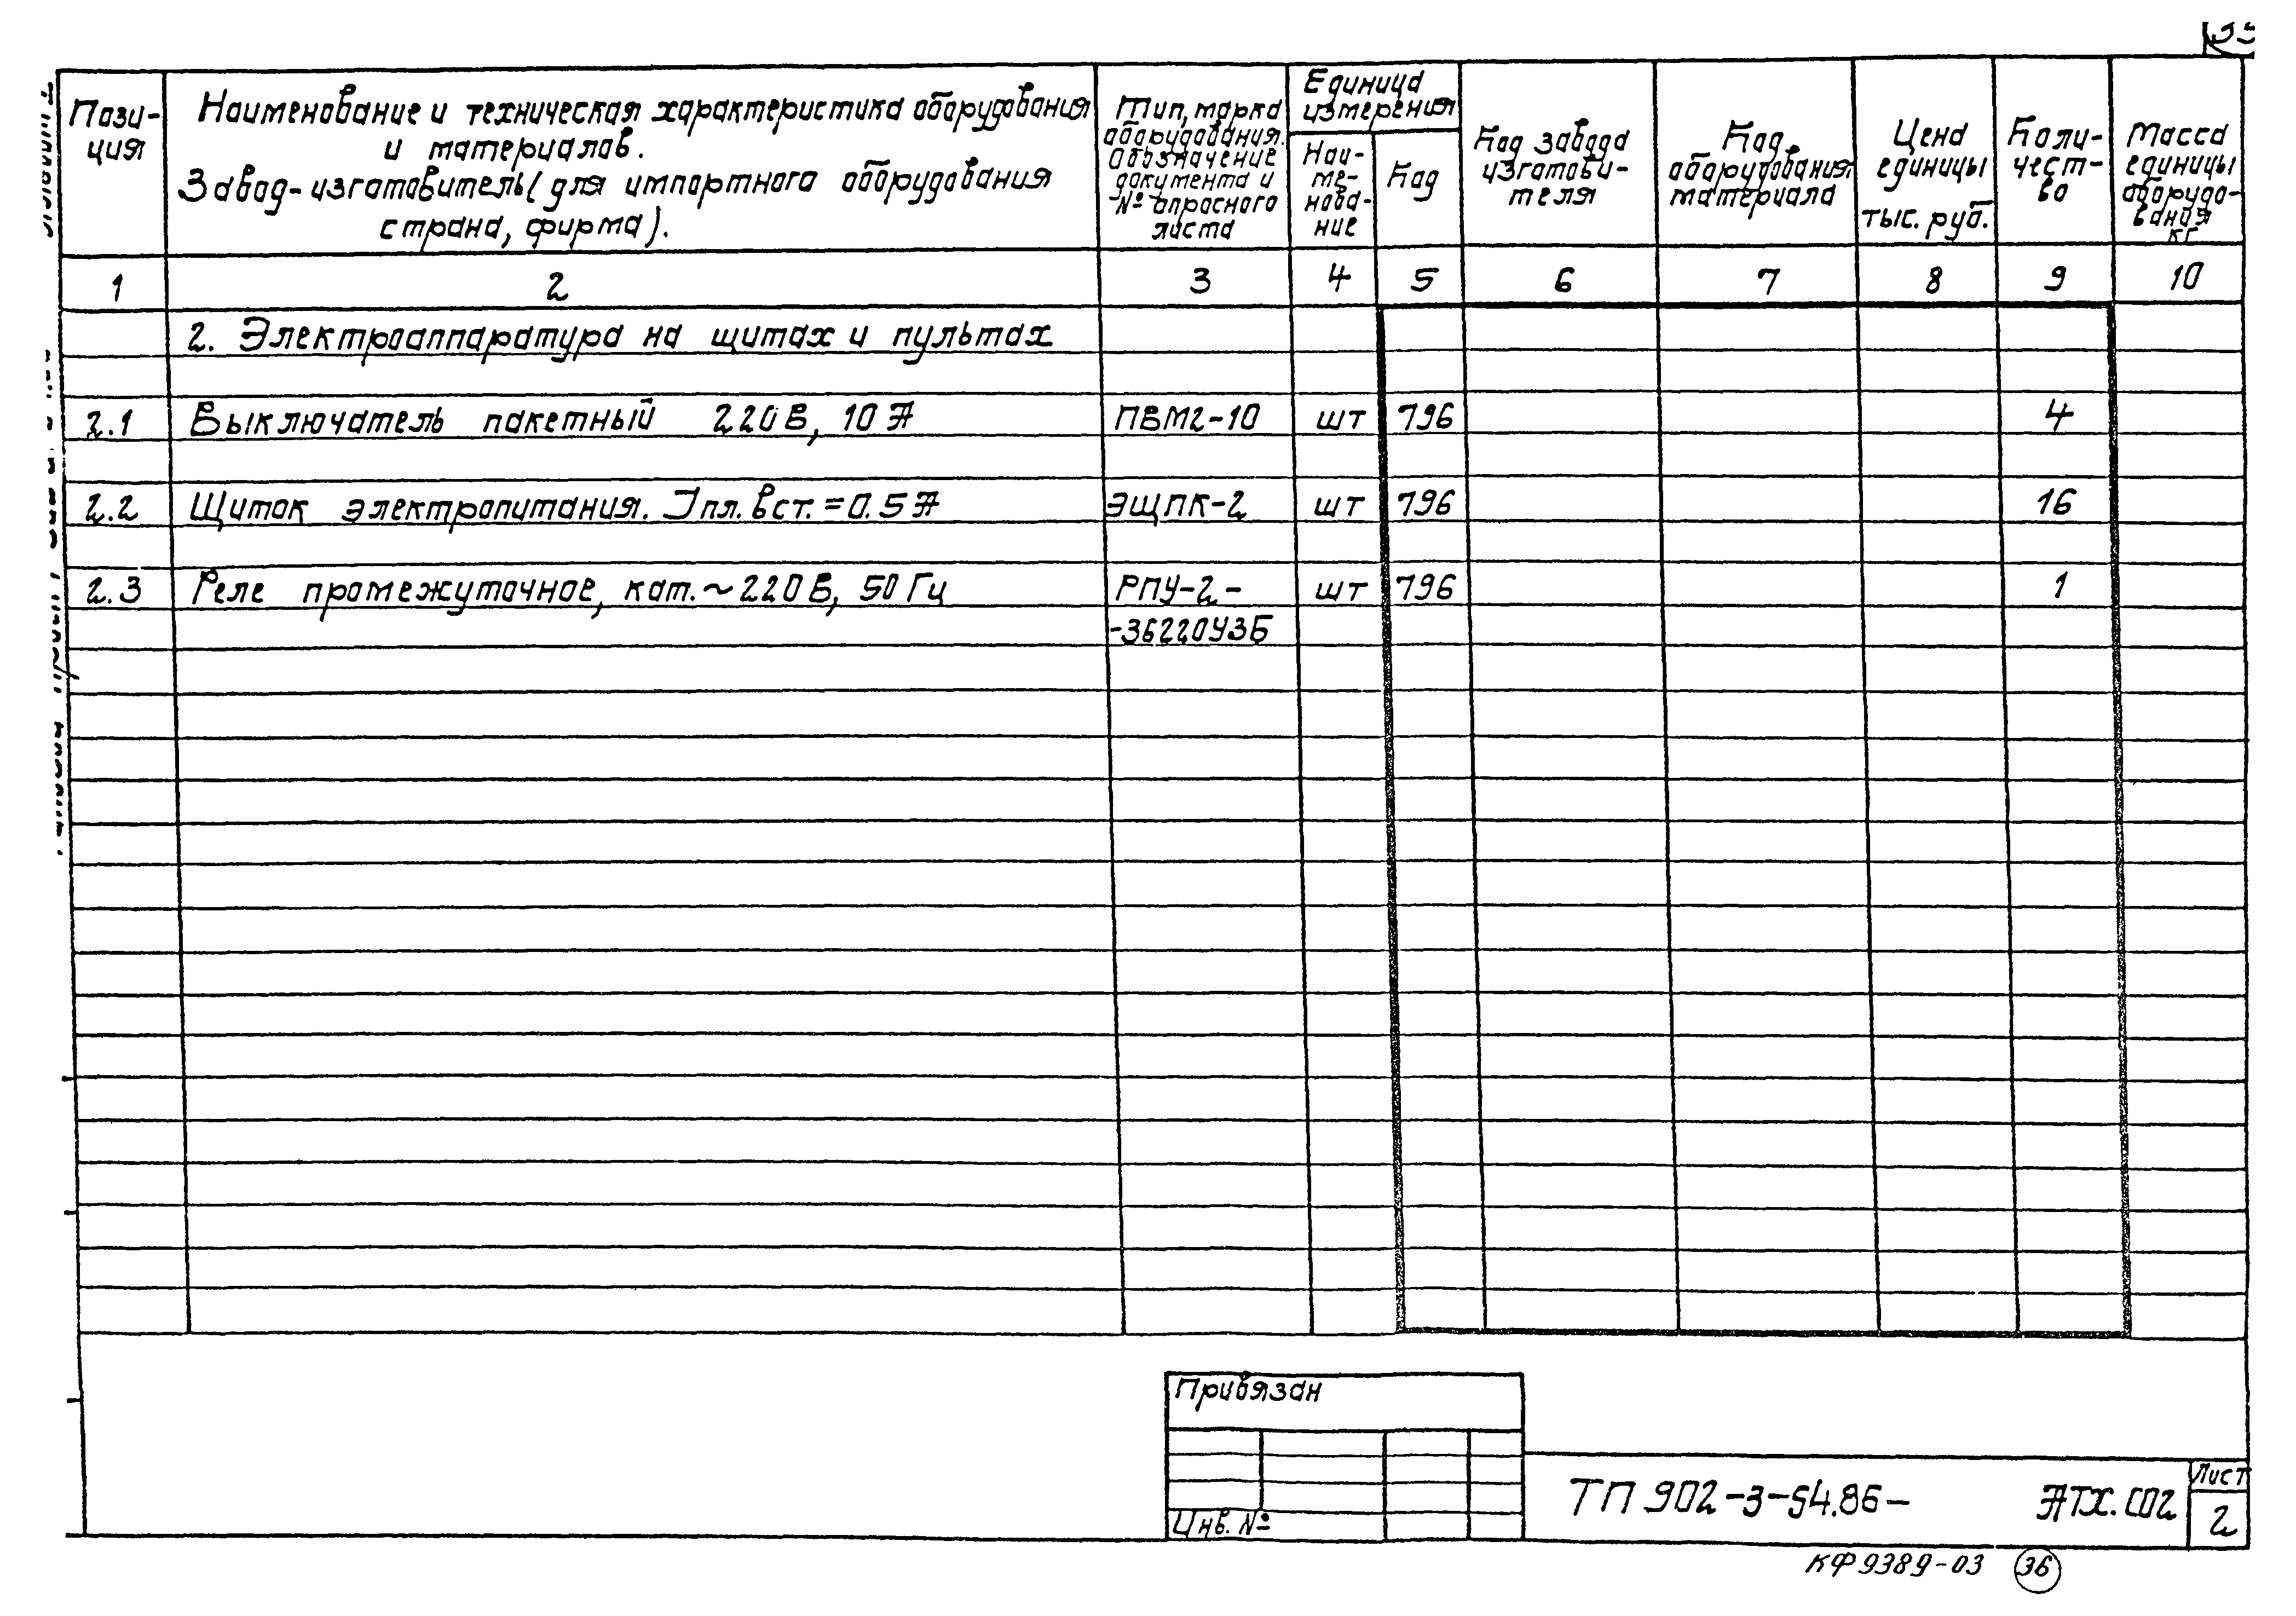 Пози-
ция
Наименование и техническая характеристика оборудования
и материалов.
Завод-изготовитель (для импортного оборудования
страна, фирма).
Тип, марка
оборудования.
Обозначение
документа и
№ опросного
листа
Единица
измерения
Наи-
ме-
нова-
ние
Код
Код завода
изготови-
теля
Код
оборудования,
материала
Цена
единицы
тыс. руб.
Коли-
чест-
во
Масса
единицы
оборудо-
вания
кг
1 2 3 4 5 6 7 8 9 10
2. Электроаппаратура на щитах и пультах
2.1 Выключатель пакетный 220В, 10А ПВМ2-10 шт 796 4
2.2 Щиток электропитания. Iпл.вст.=0.5А ЭЩПК-2 шт 796 16
2.3 Реле промежуточное, кат.~220В, 50Гц РПУ-2- шт 796 1
-36220У3Б
Привязан
Инв. №
ТП 902-3-54.86- АТХ.СО2
Лист
2
КФ 9389-03 36